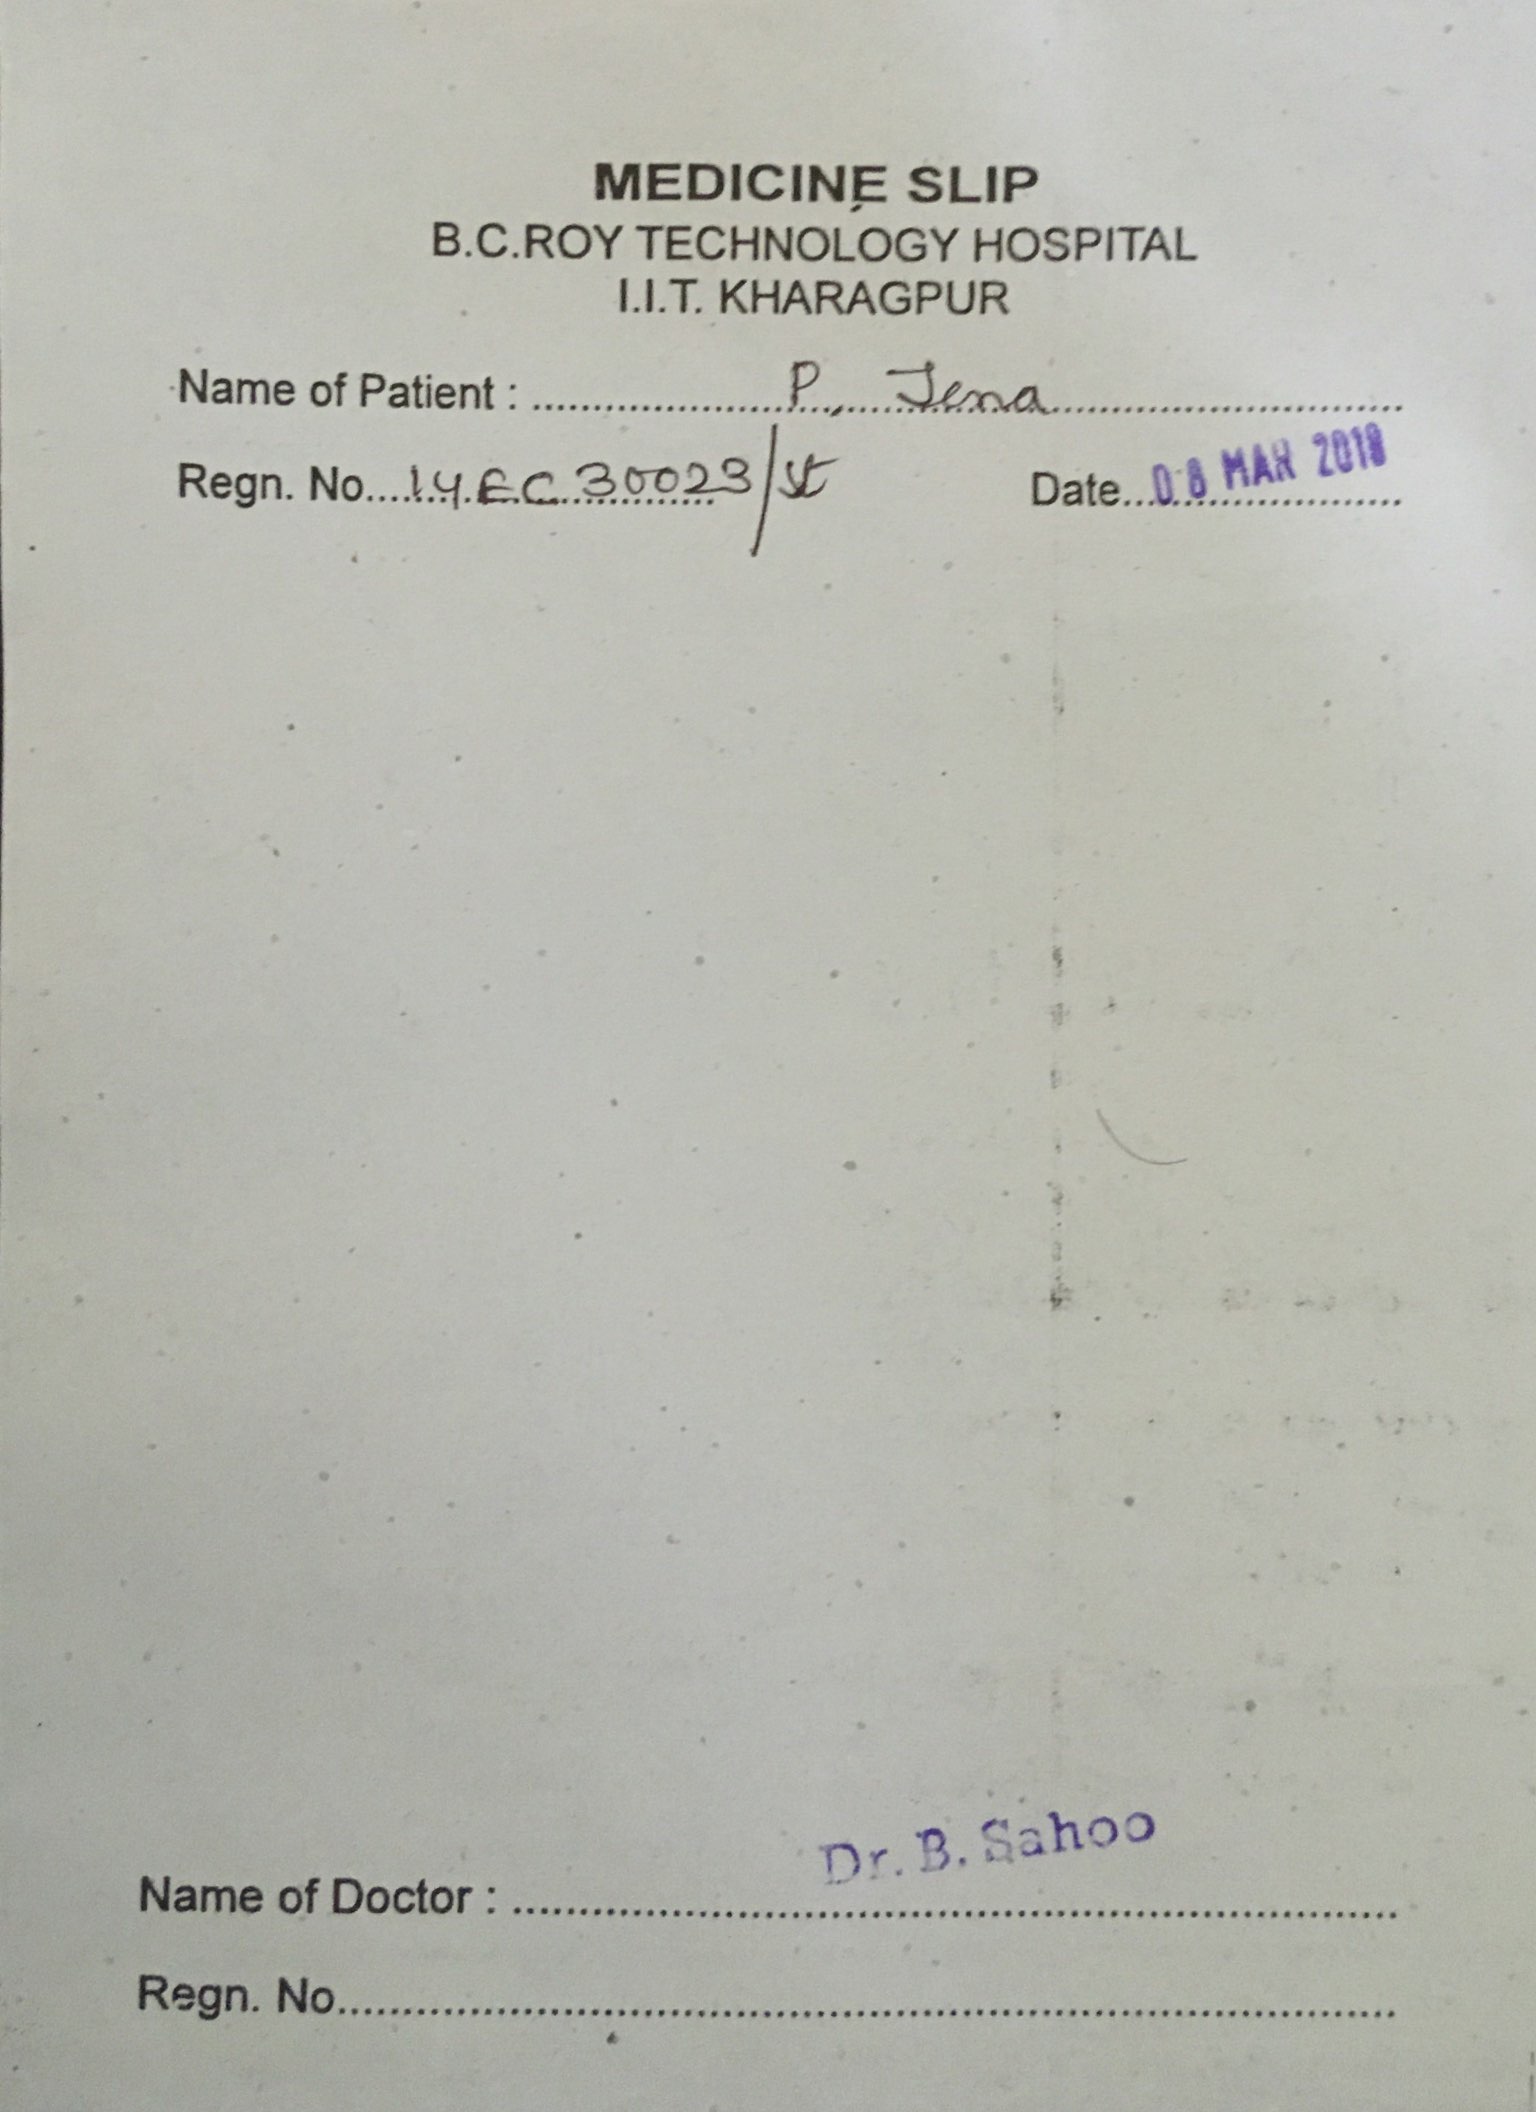 MEDICINE SLIP
B.C.ROY TECHNOLOGY HOSPITAL
I.I.T. KHARAGPUR
Name of Patient : P. Jena
Regn. No. 14EC30023/st Date 08 MAR 2018
Dr. B. Sahoo
Name of Doctor :
Regn. No.